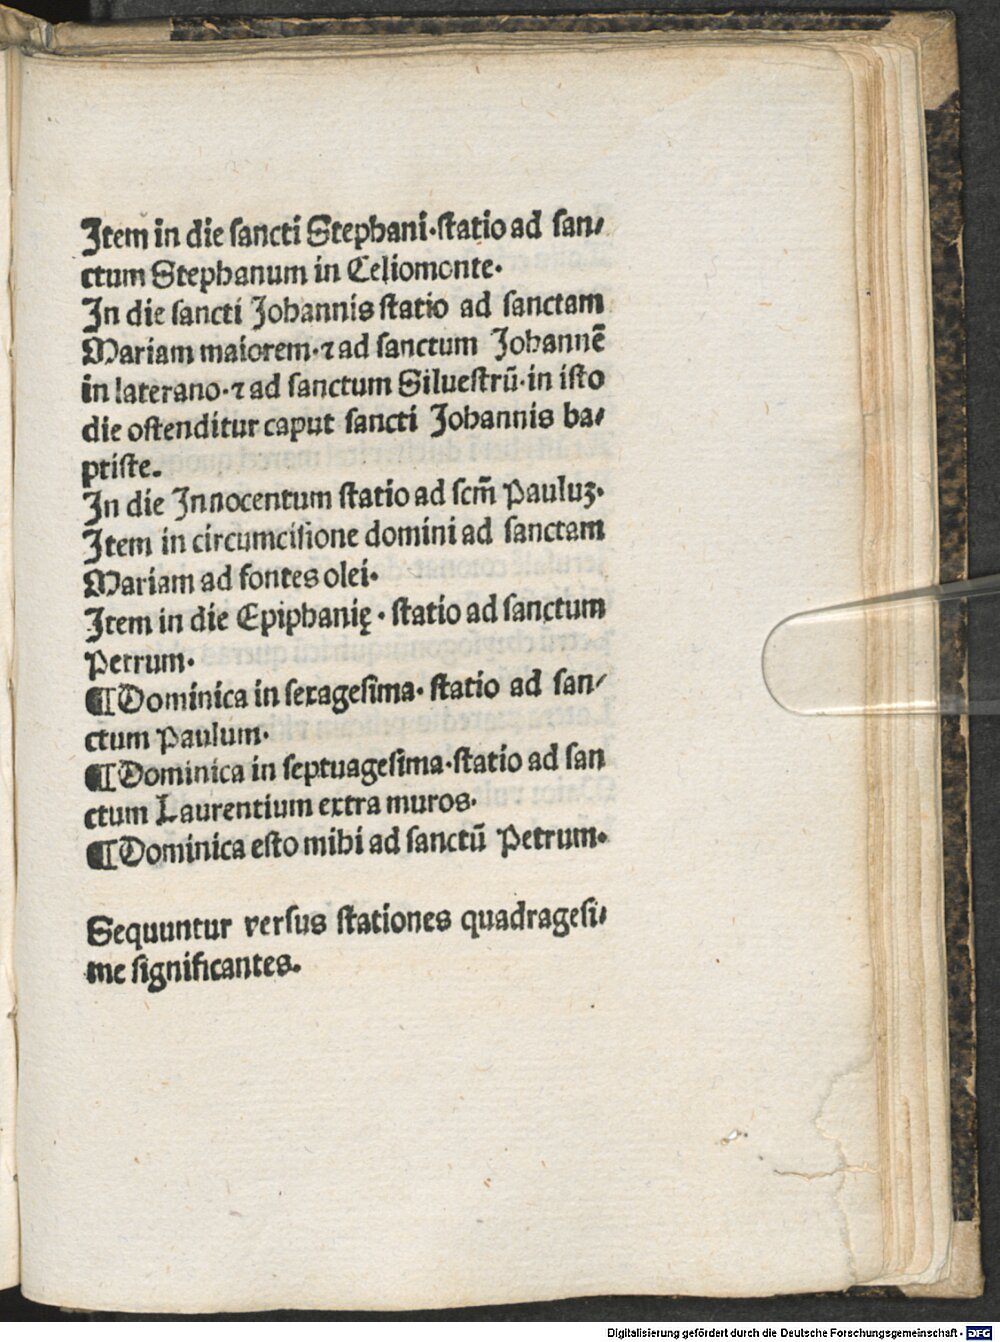 Item in die ſancti Stephani·ſtatio ad ſan⸗
ctum Stephanum in Celiomonte·
In die ſancti Johannis ſtatio ad ſanctam
Mariam maiorem·⁊ ad ſanctum Johannē
in laterano·⁊ ad ſanctum Silueſtrū·in iſto
die oſtenditur caput ſancti Johannis ba⸗
ptiſte.
In die Innocentum ſtatio ad ſcm̄ Pauluꝫ·
Item in circumciſione domini ad ſanctam
Mariam ad fontes olei·
Item in die Epiphanię · ſtatio ad ſanctum
Petrum·
¶Dominica in ſexageſima· ſtatio ad ſan⸗
ctum Paulum·
¶Dominica in ſeptuageſima·ſtatio ad ſan
ctum Laurentium extra muros·
¶Dominica eſto mihi ad ſanctū Petrum·
Sequuntur verſus ſtationes quadrageſi⸗
me ſignificantes.
Digitalisierung gefördert durch die Deutsche Forschungsgemeinschaft - DFG